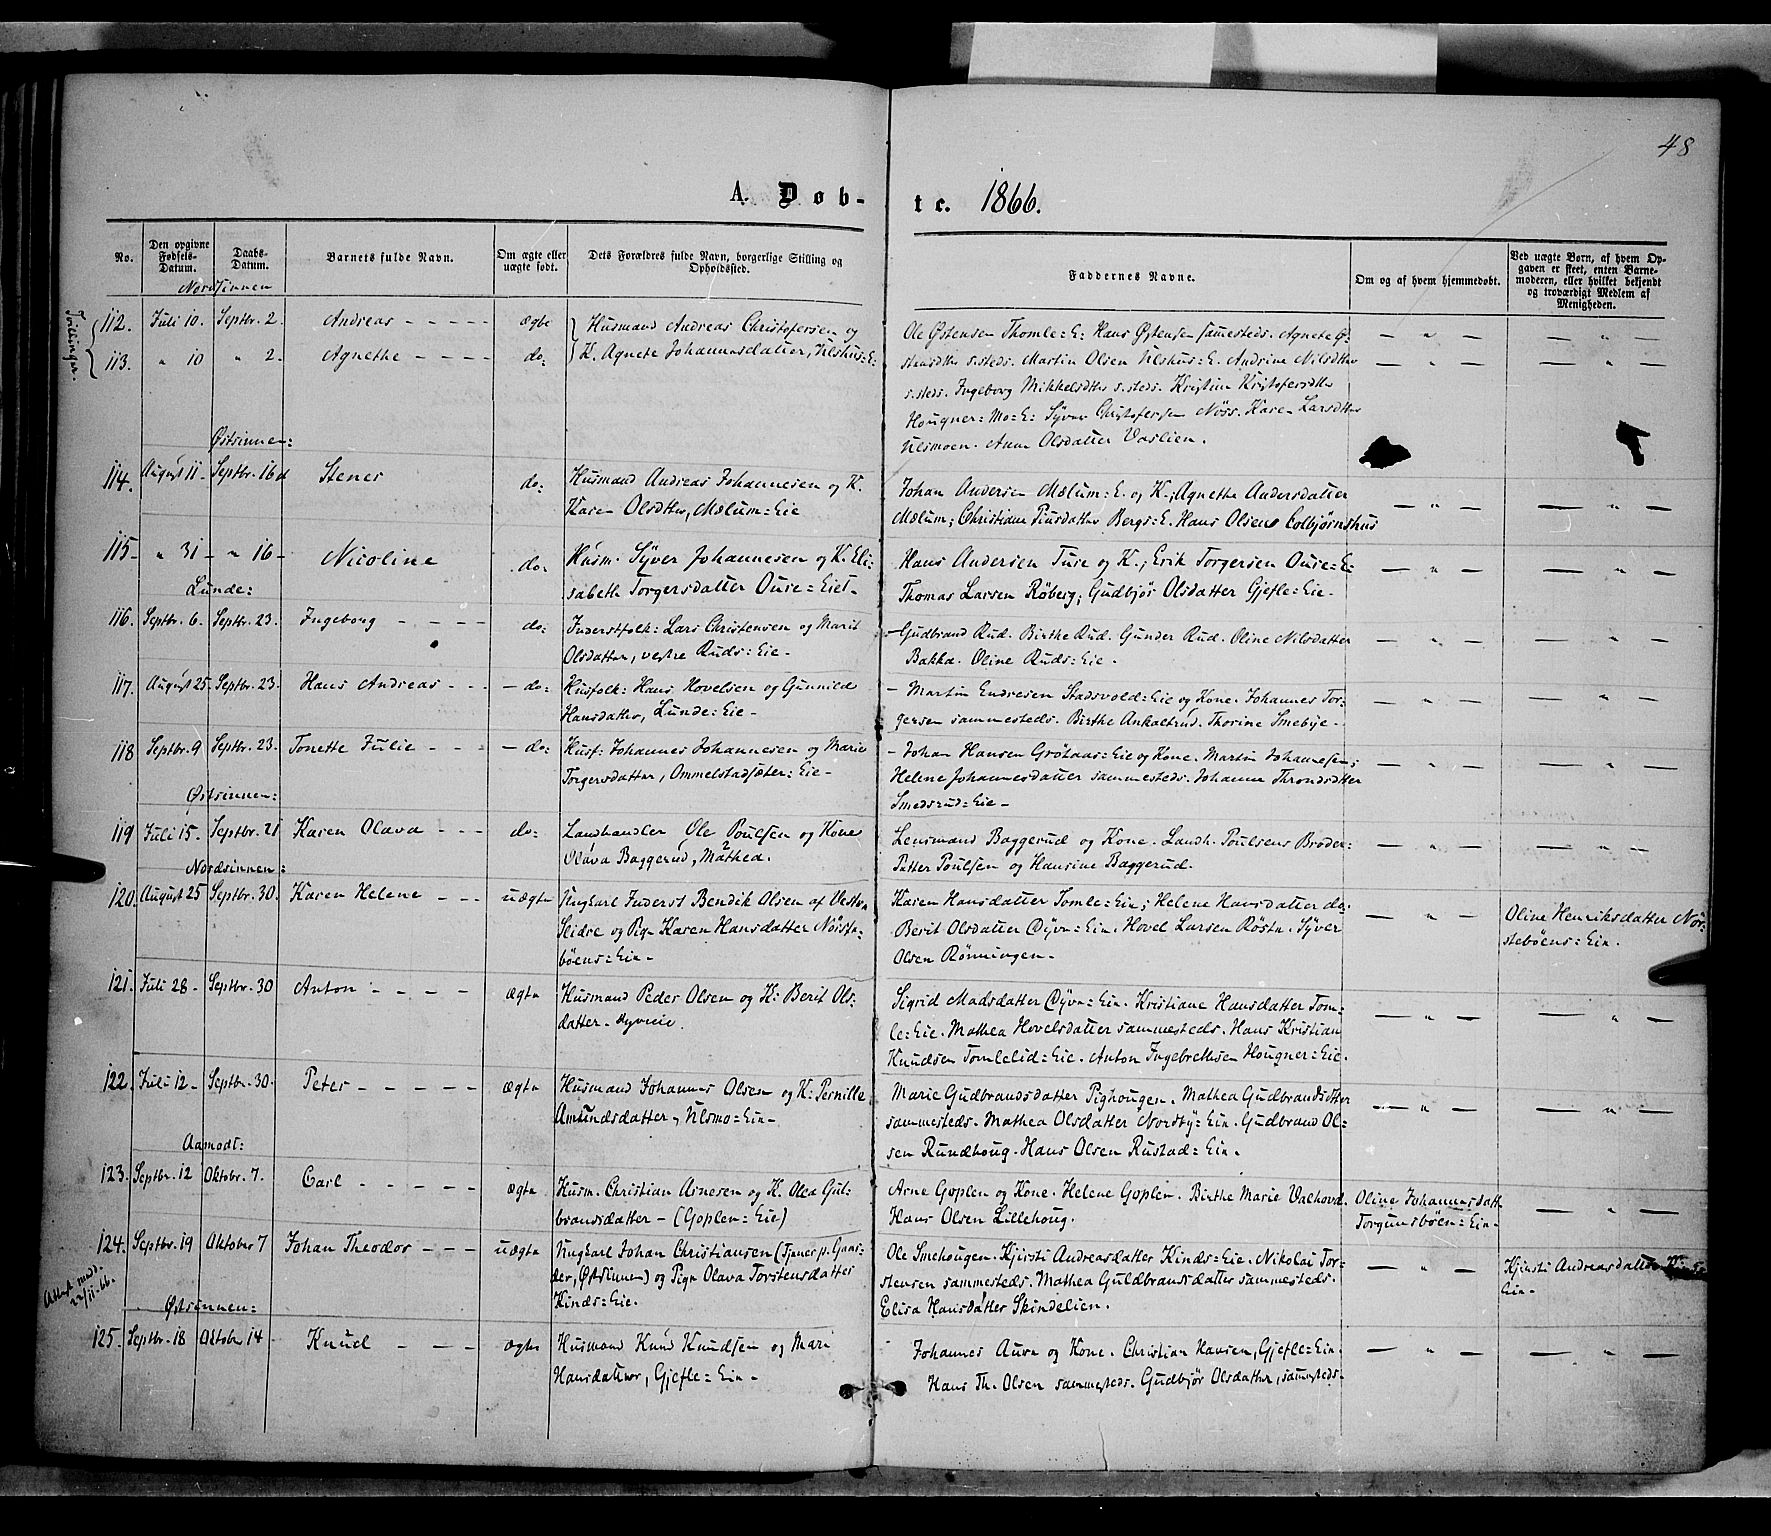 48
A. Døb- te. 1866.
No.
Den opgivne Fødsels-Datum.
Daabs-Datum.
Barnets fulde Navn.
Om ægte eller uægte født.
Dets Forældres fulde Navn, borgerlige Stilling og Opholdssted.
Faddernes Navne.
Om og af hvem hjemmedøbt.
Ved uægte Børn, af hvem Opgaven er skeet, enten Barnemoderen, eller hvilket bekjendt og troværdigt Medlem af Menigheden.
Nordsinnen
Tvillinger.
112. Juli 10. Septbr. 2. Andreas - - - - ægte Husmand Andreas Christofersen og
113. " 10 " 2. Agnethe - - - - do: K. Agnete Johannesdatter, Ulshus=E.
Ole Østensen Thomle=E: Hans Østensen sammesteds. Agnete Ø-
stensdtter s.steds. Martin Olsen Ulshus=E. Andrine Nilsdtter
s.steds. Ingeborg Mikkelsdtter s.steds. Kristine Kristofersdtter
Hougner=Mo=E: Syver Christofersen Nöss. Karen Larsdtter
Ulsmoen. Anne Olsdatter Vaslien.
Østsinnen:
114. August 11 - Septbr. 16d Stener do: Husmand Andreas Johannesen og K.
Karen Olsdtter, Mælum=Eie
Johan Andersen Mælum=E. og K.; Agnethe Andersdatter
Mælum; Christiane Piusdatter Bergs=E. Hans Olsens Colbjørnshus
115- " 31 - " 16 - Nicoline do: Husm. Syver Johannesen og K. Eli=
sabeth Torgersdatter Oure=Eiet-
Hans Andersen Ture og K., Erik Torgersen Oure=E=
Thomas Larsen Röberg; Gudbjör Olsdatter Gjefle=Eie-
Lunde:
116. Septbr. 6. Septbr. 23. Ingeborg - - - - do: Inderstfolk: Lars Christensen og Marit
Olsdatter, vestre Ruds=Eie-
Gudbrand Rud. Birthe Rud. Gunder Rud. Oline Nilsdatter
Bakka. Oline Ruds=Eie.
117. August 25. Septbr. 23. Hans Andreas - - - do: Husfolk: Hans Hovelsen og Gunnild
Hansdatter, Lunde=Eie-
- Martin Endresen Stadsvold=Eie og Kone. Johannes Tor-
gersen sammesteds. Birthe Ankaltrud. Thorine Smebye-
118 Septbr. 9 Septbr. 23. Tonette Julie - - - do: Husf: Johannes Johannesen og Marie
Torgersdatter, Ommelstadsæter=Eie-
- Johan Hansen Gröhaas=Eie og Kone. Martin Johannesen;
Helene Johannesdatter sammesteds. Johanne Throndsdatter
Smedsrud=Eie-
Østsinnen:
119 Juli 15. Septbr. 21 Karen Olava - - - do: Landhandler Ole Poulsen og Kone
Olava Baggerud, Mathea.
Lensmand Baggerud og Kone. Landh. Poulsens Broder-
Petter Poulsen og Hansine Baggerud.
Nordsinnen:
120. August 25 Septbr. 30. Karen Helene - - uægte Ungkarl Inderst Bendik Olsen af Vestre
Slidre og Pige Karen Hansdatter Nörste=
böens=Eie-
Karen Hansdatter Tomle=Eie; Helene Hansdatter do-
Berit Olsdatter Dyvn=Eie. Hovel Larsen Röste. Syver
Olsen Rönningen-
Oline Henriksdatter Nör=
stebøens=Eie.
121. Juli 28 - Septbr. 30 Anton - - - - ægte Husmand Peder Olsen og K: Berit Ols-
datter- Dyvneie.
Sigrid Madsdatter Dyvn=Eie. Kristiane Hansdatter Tom=
le=Eie. Mathea Hovelsdatter sammesteds. Hans Kristian
Knudsen Tomlelid=Eie. Anton Ingebrethsen Hougner=Eie.
122. Juli 12 - Septbr. 30. Peter - - - - - ægte Husmand Johannes Olsen og K: Pernille
Amundsdatter, Ulsmo=Eie-
Marie Gudbrandsdatter Pighougen. Mathea Gudbrandsdtter
sammesteds. Mathea Olsdatter Nordby=Eie. Gudbrand Ol=
sen Rundhoug. Hans Olsen Rustad=Eie.
Aamodt:
123. Septbr. 12 Oktobr. 7. Carl - - - - - ægte Husm. Christian Arnesen og K. Olea Gul=
brandsdatter - (Goplen=Eie)
Arne Goplen og Kone. Helene Goplen. Birthe Marie Valhovd.
Hans Olsen Lillehoug.
Oline Johannesdatt.
Torgunsböen=Eie-
124. Septbr. 19 Oktober 7 Johan Theodor - - - uægte Ungkarl Johan Christiansen (Tjener p. Gaar=
der, Østsinnen) og Pige Olava Torstensdatter
Kinds=Eie.
Attest medd. 22/11-66.
Ole Smehougen. Kjersti Andreasdatter Kinds=Eie. Nikolai Tor=
stensen sammesteds. Mathea Guldbransdatter sammesteds.
Elisa Hansdatter Skindelien.
Kjersti Andreasdatter
Eie-
Østsinnen:
125. Septbr. 18 Oktober 14 - Knud - - - ægte Husmand Knud Knudsen og Mari
Hansdatter, Gjefle=Eie-
Johannes Aurn og Kone. Christian Hansen, Gjefle=Eie-
Hans Th. Olsen sammesteds. Gudbjör Olsdatter, sammesteds-